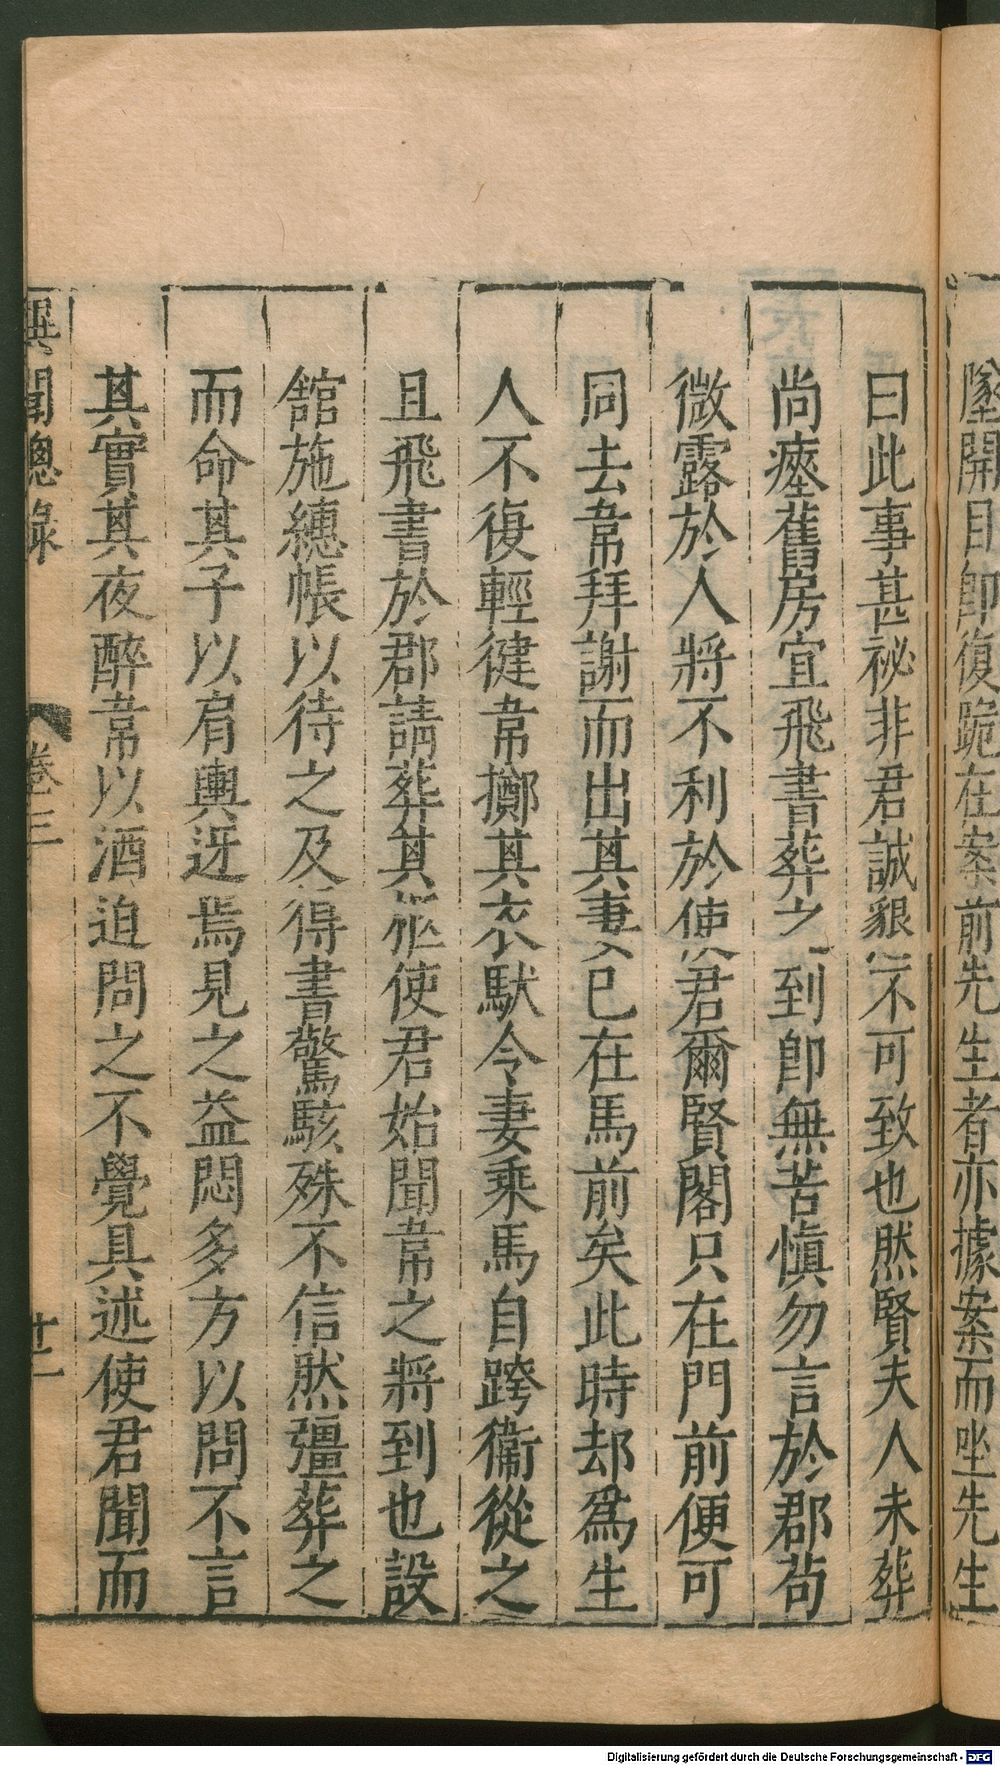 墜開目即復跪在案前先生者亦據案而坐先生
曰此事甚祕非君誠懇不可致也然賢夫人未葬
尚瘞舊房宜飛書葬之到即無苦愼勿言於郡苟
微露於人將不利於使君爾賢閣只在門前便可
同去韋拜謝而出其妻已在馬前矣此時却爲生
人不復輕徤韋擲其衣馱令妻乘馬自跨衞從之
且飛書於郡請葬其柩使君始聞韋之將到也設
舘施繐帳以待之及得書驚駭殊不信然彊葬之
而命其子以肩輿迓焉見之益悶多方以問不言
其實其夜醉韋以酒迫問之不覺具述使君聞而
異聞總錄
卷三
廿二
Digitalisierung gefördert durch die Deutsche Forschungsgemeinschaft - DFG